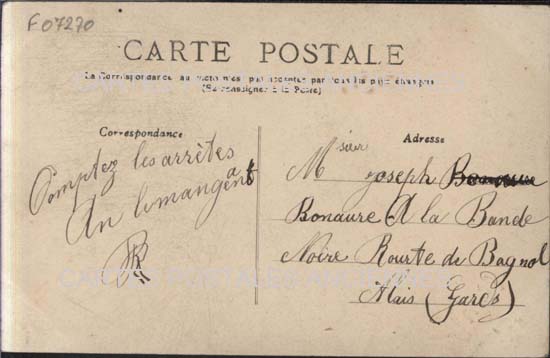 F07270
CARTE POSTALE
La Correspondance au recto n'est pas acceptée par tous les pays étrangers
(Se renseigner à la Poste)
CARTES POSTALES ANCIENNES
Correspondance
Adresse
Comptez les arrêtes
An le mangeant
JR
Msieur Joseph
Bonaure A la Bande
Noire Rourte de Bagnol
Alais (Gard)
CARTES POSTALES ANCIENNES